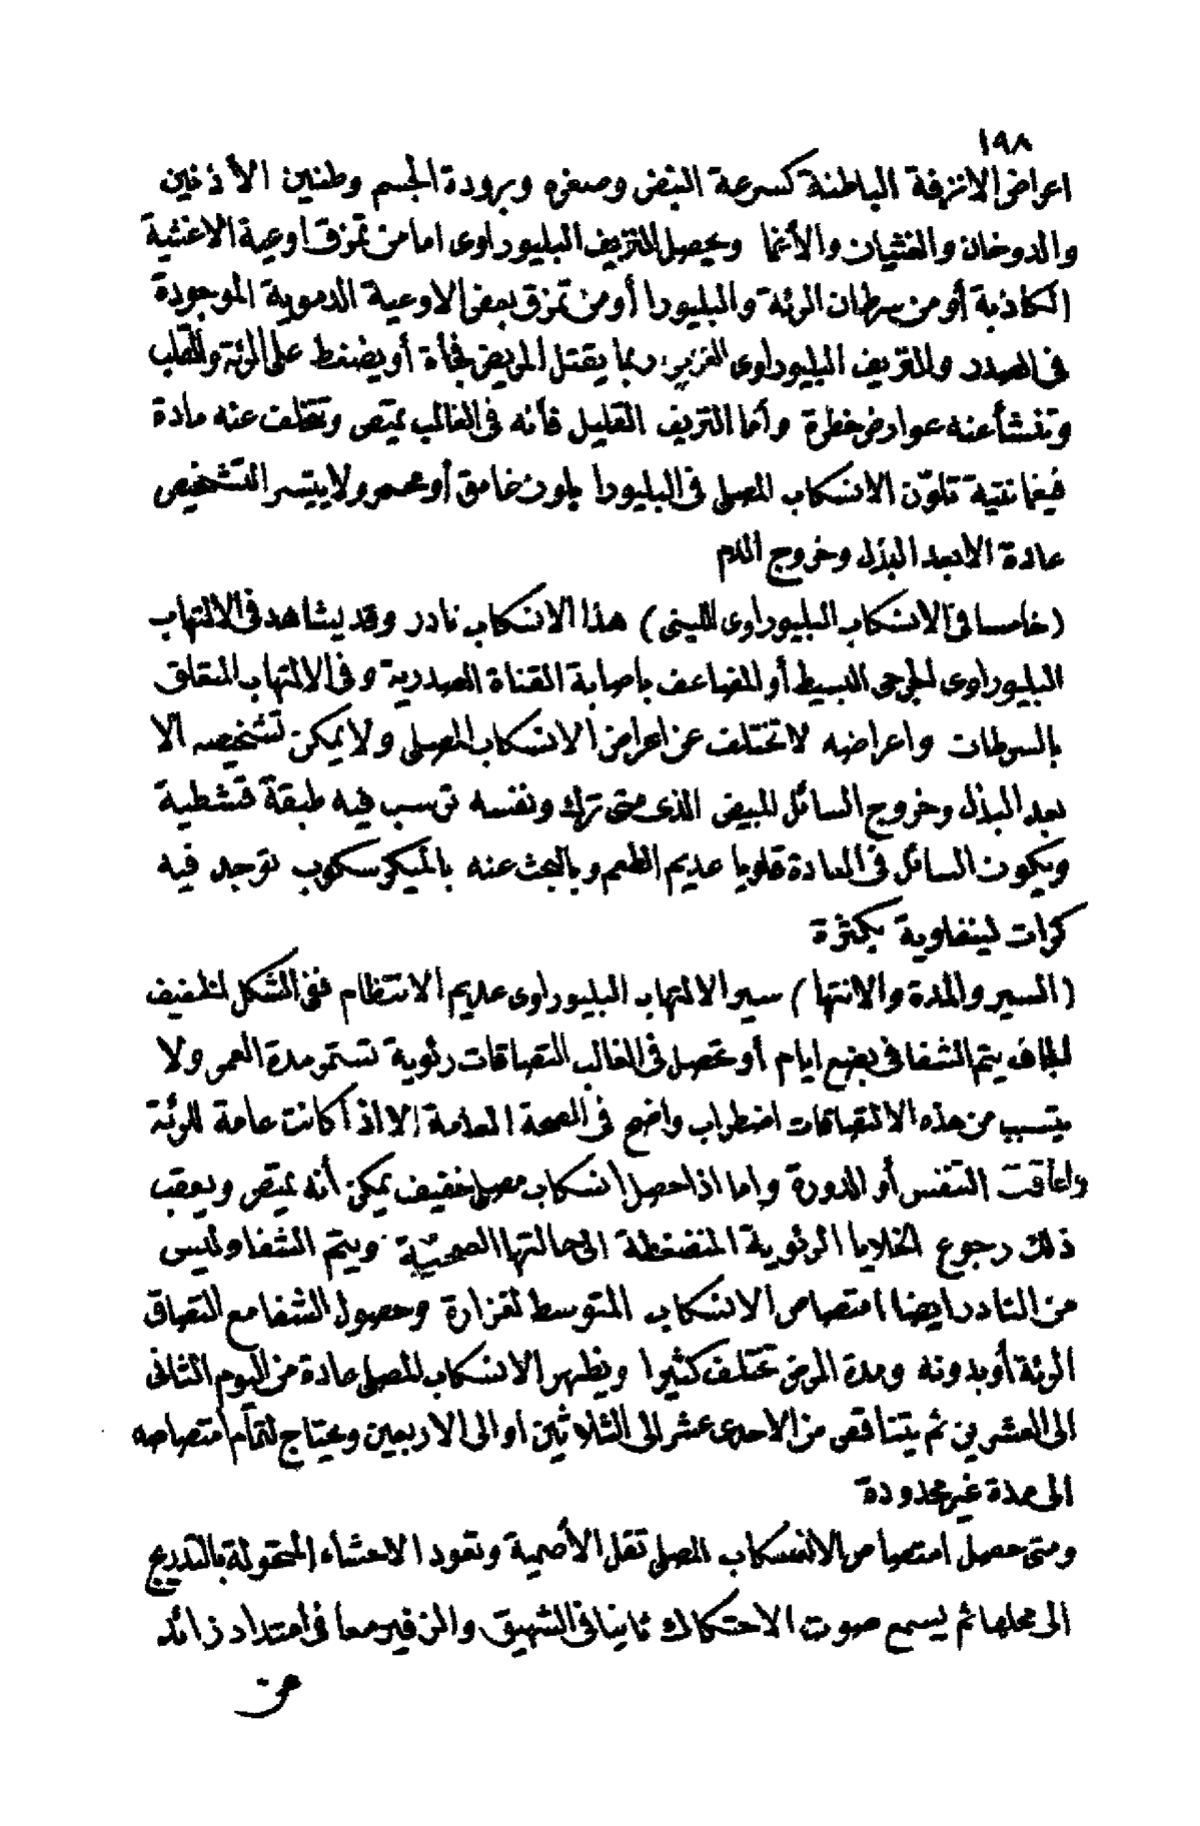 ١٩٨
اعراض الانزفة الباطنة كسرعة النبض وصغره وبرودة الجسم وطنين الأذنين
والدوخان والغثيان والأغما ويحصل النزيف البليوراوى اما من تمزق اوعية الاغشية
الكاذبة أو من سرطان الرئة والبليورا أو من تمزق بعض الاوعية الدموية الموجودة
فى الصدر والنزيف البليوراوى الغزير ربما يقتل المريض فجأة أو يضغط على الرئة والقلب
وتنشأ عنه عوارض خطرة وأما النزيف القليل فأنه فى الغالب يمتص وتتخلف عنه مادة
تلوّن الانسكاب المصلى فى البليورا بلون غامق أو محمر ولا يتيسر التشخيص
عادة الا بعد البذل وخروج الدم
(خامسا فى الانسكاب البليوراوى اللبنى) هذا الانسكاب نادر وقد يشاهد فى الالتهاب
البليوراوى الجرحى البسيط أو المضاعف باصابة القناة الصدرية وفى الالتهاب المتعلق
بالسرطان واعراضه لا تختلف عن اعراض الانسكاب المصلى ولا يمكن تشخيصه الا
بعد البذل وخروج السائل المبيض الذى متى ترك ونفسه ترسب فيه طبقة قشطية
ويكون السائل فى العادة قلويا عديم الطعم وبالبحث عنه بالميكرسكوب توجد فيه
كرات لينفاوية بكثرة
(السير والمدة والانتها) سير الالتهاب البليوراوى عديم الانتظام ففى الشكل الخفيف
الجاف يتم الشفا فى بضع ايام أو تحصل فى الغالب التصاقات رئوية تستمر مدة العمر ولا
يتسبب من هذه الالتصاقات اضطراب واضح فى الصحة العامة الا اذا كانت عامة للرئة
واعاقت التنفس أو الدورة واما اذا حصل انسكاب مصلى خفيف يمكن أنه يمتص ويعقب
ذلك رجوع الخلايا الرئوية المنضغطة الى حالتها الصحيّة ويتم الشفا وليس
من النادر ايضا امتصاص الانسكاب المتوسط الغزارة وحصول الشفا مع التصاق
الرئة أو بدونه ومدة المرض تختلف كثيرا ويظهر الانسكاب المصلى عادة من اليوم الثانى
الى العشرين ثم يتناقص من الاحدى عشر الى الثلاثين او الى الاربعين ويحتاج لتمام امتصاصه
الى مدة غير محدودة
ومتى حصل امتصاص الانسكاب المصلى تقل الأصمية وتعود الاحشاء المتحولة بالتدريج
الى محلها ثم يسمع صوت الاحتكاك ثانيا فى الشهيق والزفير معا فى امتداد زائد
عن